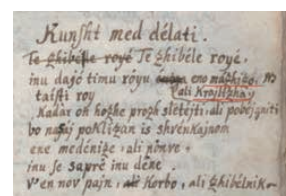 Kunſht med délati.
Te zhibéle royé Te zhibéle royé,
inu dajó timu róyu eno mazhizo,
ali Krajlizha,
taiſti roy
Kadar on hozhe prozh sletejti, ali pobejgniti
bo naſaj poklizan is shvénkajnom
ene medénize, ali pónve,
inu ſe saprè inu déne
v'en nov pajn, ali Korbo, ali zhibélnik